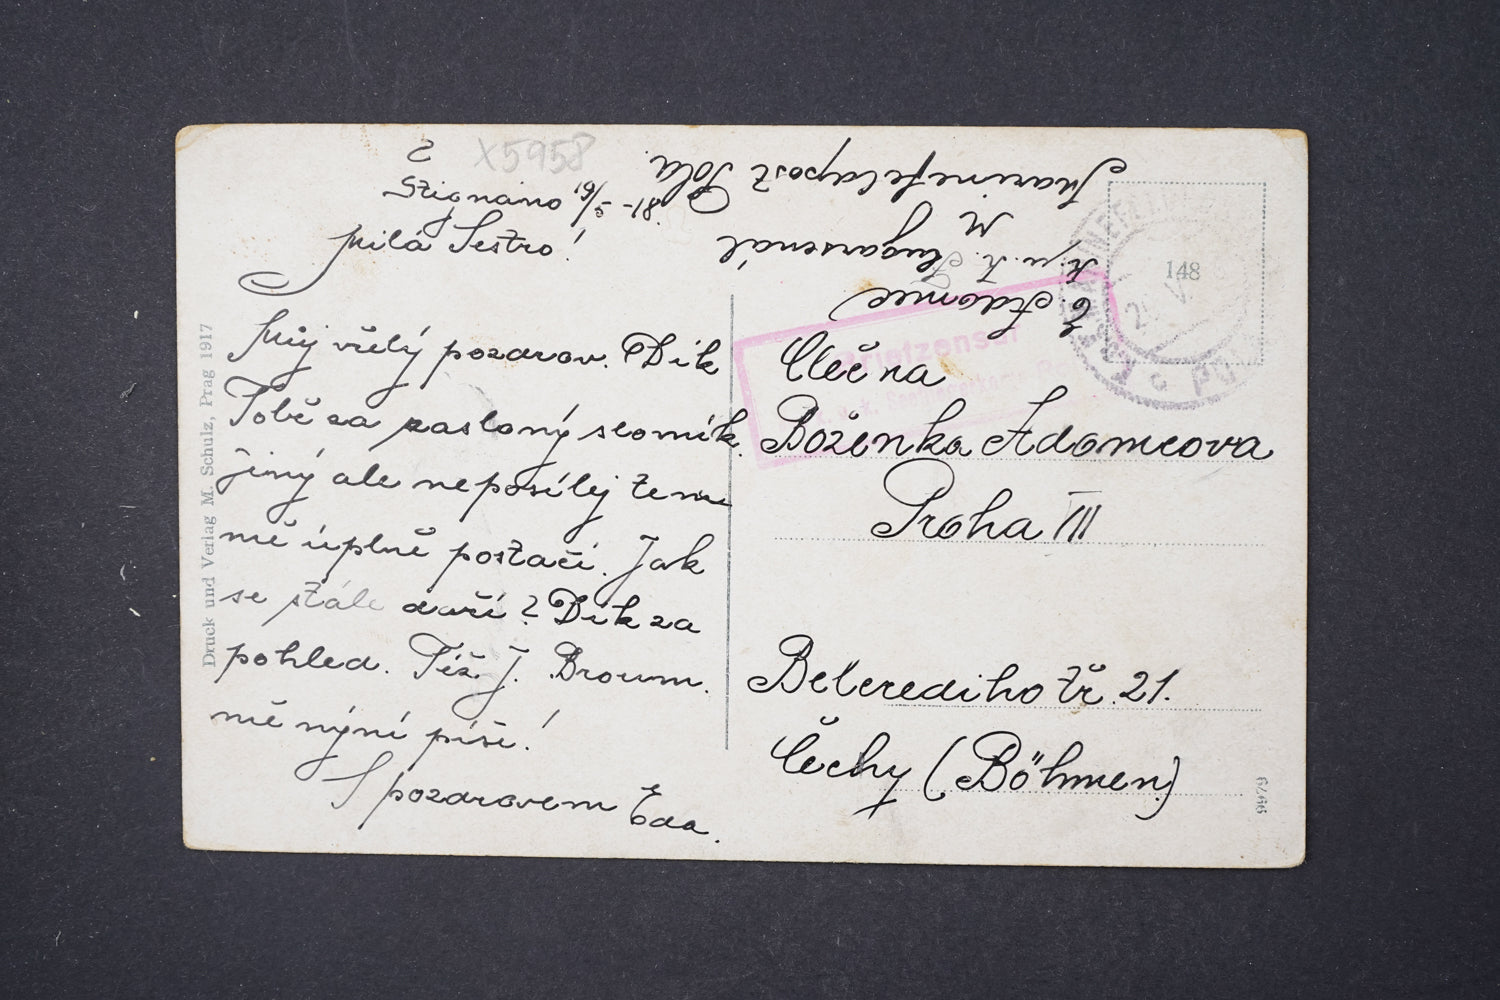 X5958
Stignano 19/5 - 18.
Milá Sestro!
Můj vřelý pozdrav. Dík
Tobě za zaslaný slovník.
jiný ale neposílej ten
mě úplně postačí. Jak
se stále daří? Dík za
pohled. Též J. Broum.
mě nyní píše!
S pozdravem Eda.
E Adamec
k. u. k. Flugarsenal
M
Marinefeldpost Pola.
148
Briefzensur
Slečna
Boženka Adamcova
Praha VII
Belcrediho tř. 21.
Čechy (Böhmen)
Druck und Verlag M. Schulz, Prag 1917
9979